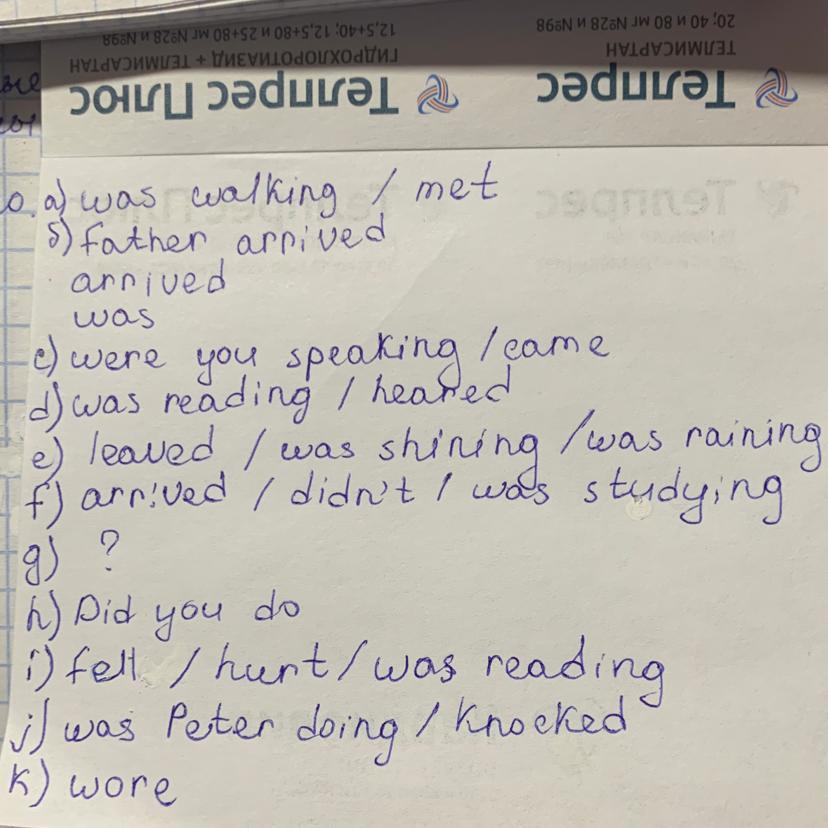 12,5+40; 12,5+80 и 25+80 мг №28 и №98
ГИДРОХЛОРОТИАЗИД + ТЕЛМИСАРТАН
Телпрес Плюс
20; 40 и 80 мг №28 и №98
ТЕЛМИСАРТАН
Телпрес
0. a) was walking / met
б) father arrived
arrived
was
c) were you speaking / came
d) was reading / heared
e) leaved / was shining / was raining
f) arrived / didn't / was studying
g) ?
h) Did you do
i) fell / hurt / was reading
j) was Peter doing / knocked
k) wore